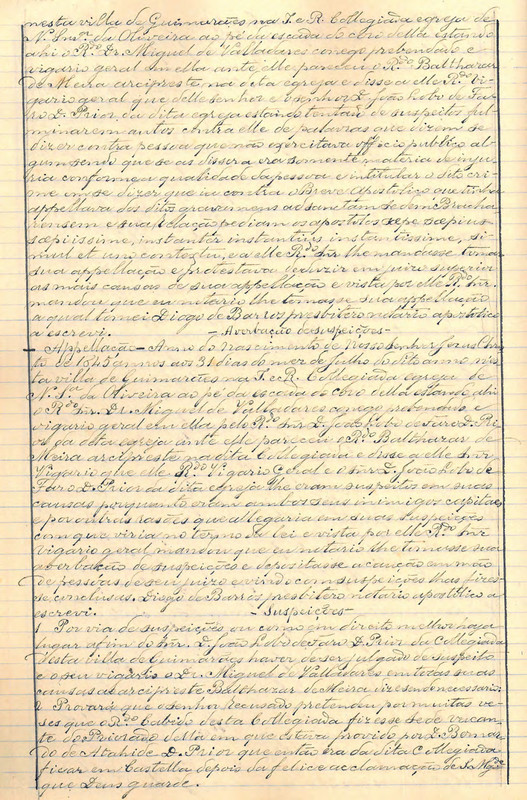 nesta villa de Guimarães na I. e R. Collegiada egreja de
N.ª Snr.ª da Oliveira ao pé da escada do coro della estando
ahi o R.do Dr. Miguel de Valladares conego prebendado e
vigario geral em ella ante elle pareceu o R.do Balthazar
de Meira arcipreste na dita egreja e disse a elle R.do Vi-
gario geral que delle senhor e do senhor D. João Lobo de Fa-
ro D. Prior da dita egreja estando tentado de suspeitos ful-
minarem autos contra elle de palavras que dizem se
dizer contra pessoa que não exercitava officio publico al-
gum sendo que se as dissera era somente materia de inju-
ria conforme a qualidade da pessoa e intitular o dito cri-
me em se dizer que ia contra o Breve Apostolico que tinha
appellava dos ditos gravames ad sanctam sedem Bracha-
rensem e sua relação pediam os apostolos sepe sepius
sepissime, instanter instantius instantissime, si-
mul et uno contextu, e a elle R.do Snr. lhe mandasse tomar
sua appellação e protestava deduzir em juizo superior
as mais causas de sua appellação e vista por elle R.do Snr.
mandou que eu notario lhe tomasse sua appellação
a qual tomei Diogo de Barros presbitero notario apostolico
a escrevi. — Averbação de suspeições —
— Appellação — Anno do nascimento de Nosso Senhor Jesus Chris-
to de 1645 annos aos 31 dias do mez de Julho do dito anno nes-
ta villa de Guimarães na I. e R. Collegiada egreja de
N. S.ra da Oliveira ao pé da escada do coro della estando ahi
o R.do Snr. Dr. Miguel de Valladares conego prebendado e
vigario geral em ella pelo R.do Snr. D. João Lobo de Faro D. Pri-
or da dita egreja ante elle pareceu o R.do Balthazar de
Meira arcipreste na dita Collegiada e disse a elle Snr.
Vigario que elle R.do Vigario Geral e o Snr. D. João Lobo de
Faro D. Prior da dita egreja lhe eram suspeitos em suas
causas porquanto eram ambos seus inimigos capitaes
e por outras rasões que allegaria em suas suspeições
com que viria no termo da lei e vista por elle R.do Snr.
vigario geral mandou que eu notario lhe tomasse sua
averbação de suspeições e depositasse a caução em mão
de pessoas de seu juizo e vindo com suspeições lhas fizes-
se conclusas. Diogo de Barros presbitero notario apostolico a
escrevi. — Suspeições —
1 Por via de suspeições, ou como em direito melhor haja
lugar a fim do Snr. D. João Lobo de Faro D. Prior da Collegiada
desta villa de Guimarães haver de ser julgado de suspeito
e o seu vigario o Dr. Miguel de Valladares em todas suas
causas ao arcipreste Balthazar de Meira dizendo necessario
2 Provará que o senhor Recusado pretendeu por muitas ve-
ses que o R.do Cabido desta Collegiada fizesse sede vacan-
te do Priorado della em que estava provido por D. Bernar-
do de Atahide D. Prior que então era da dita Collegiada
ficar em Castella depois da felice acclamação de S. Mg.de
que Deus guarde.